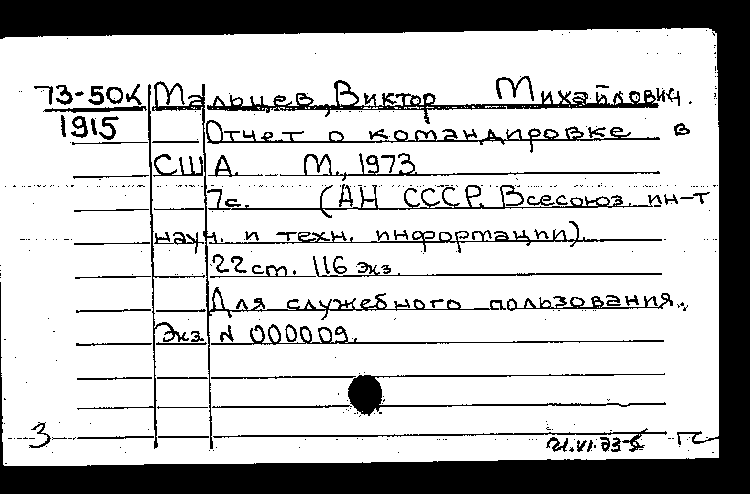 73-50к Мальцев, Виктор Михайлович.
1915 Отчет о командировке в
США. М., 1973
7с. (АН СССР. Всесоюз. ин-т
науч. и техн. информации).
22 см. 116 экз.
Для служебного пользования.
Экз. N 000009.
3 21.VI.73-5 ГС